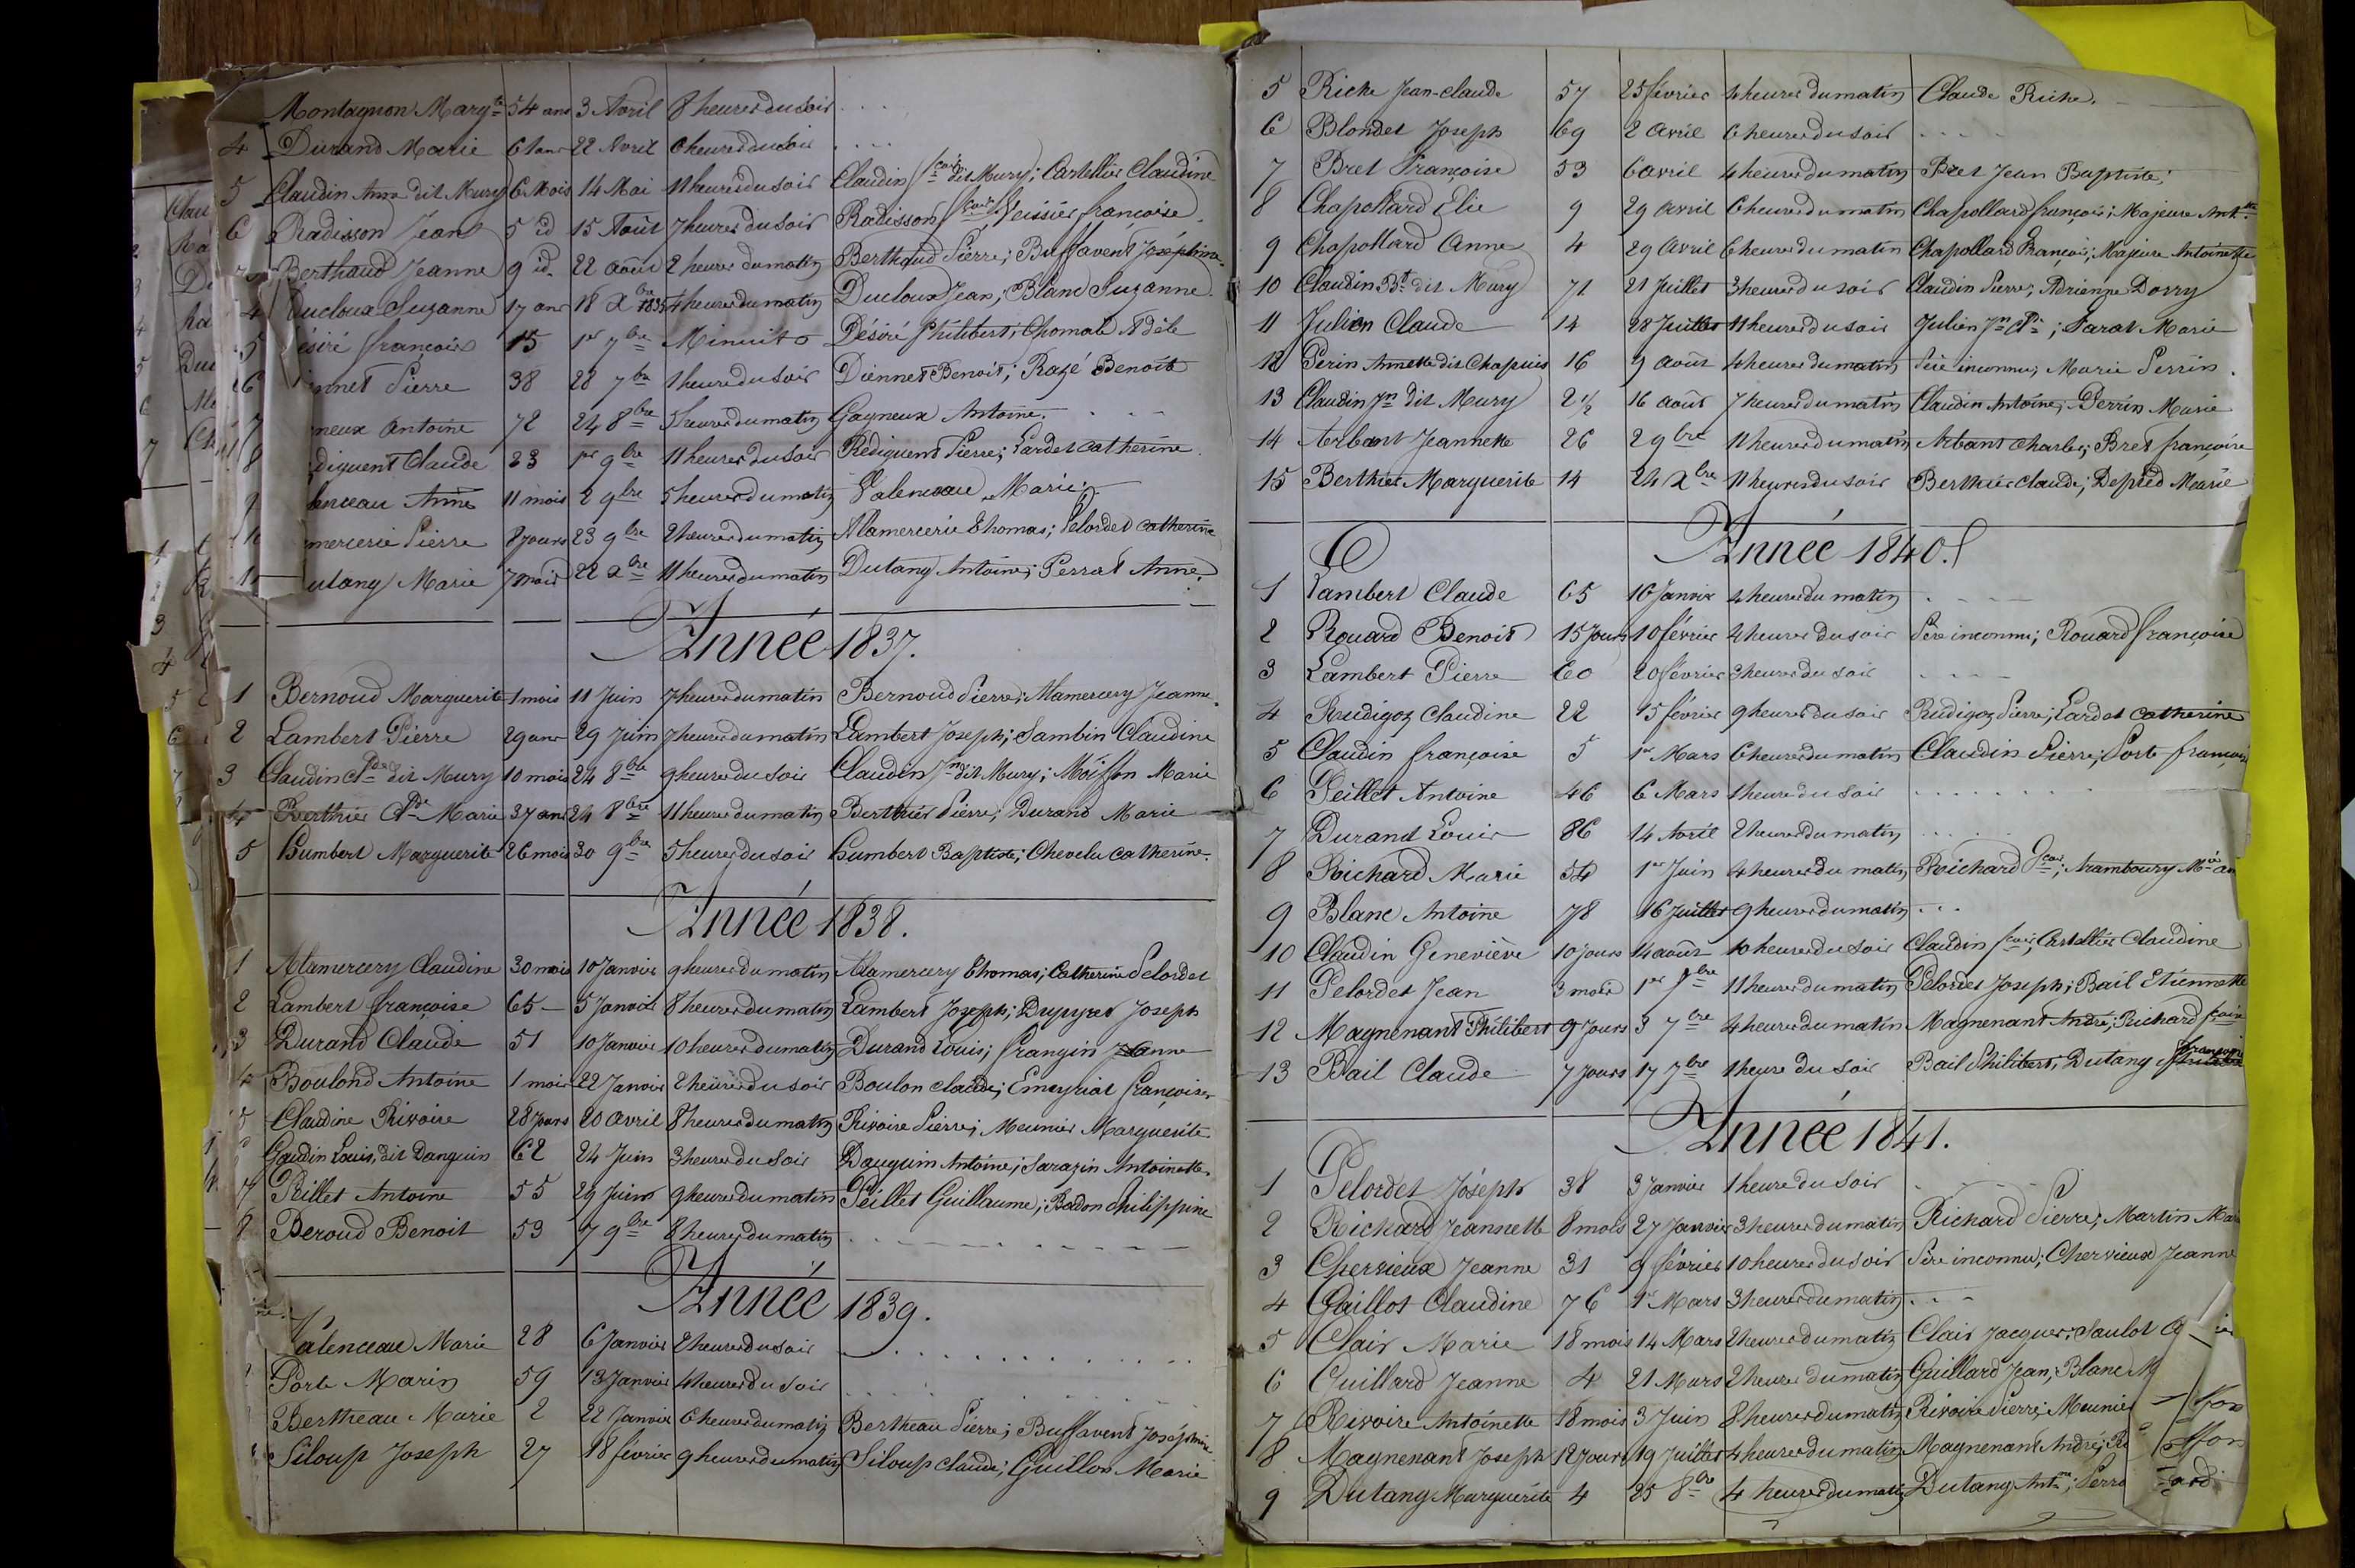 Montagnon Marg.te 54 ans 3 Avril 8 heures du soir
4 Durand Marie 61 ans 22 Avril 6 heures du soir
5 Claudin Anne dit Mury 6 Mois 14 Mai 11 heures du soir Claudin f.cois dit Mury; Cartellier Claudine
6 Radisson Jean 5 id 15 Août 7 heures du soir Radisson f.cois; Teissier françoise
Berthaud Jeanne 9 id. 22 août 2 heures du matin Berthaud Pierre; Buffavent Joséphine
4 Ducloux Suzanne 17 ans 18 Xbre 1835 4 heures du matin Ducloux Jean; Blanc Suzanne
5 ésiré françois 15 1er 7bre Minuit Désiré Philibert; Chomat Adèle
6 nnet Pierre 38 28 7bre 1 heure du soir Diennet Benoit; Razé Benoîte
7 neux Antoine 72 24 8bre 5 heures du matin Gagneux Antoine
8 diguent Claude 23 1er 9bre 11 heures du soir Rediguent Pierre; Lardet Catherine
9 lenceau Anne 11 mois 2 9bre 5 heures du matin Valenceau Marie
mercerie Pierre 8 jours 23 9bre 2 heures du matin Alamercerie Thomas; Pelordet Catherine
utang Marie 7 mois 22 Xbre 11 heures du matin Dutang Antoine; Perrat Anne
Année 1837.
1 Bernoud Marguerite 1 mois 11 Juin 7 heures du matin Bernoud Pierre; Alamercery Jeanne
2 Lambert Pierre 29 ans 29 Juin 7 heures du matin Lambert Joseph; Sambin Claudine
3 Claudin Cl.de dit Mury 10 mois 24 8bre 9 heures du soir Claudin J.n dit Mury; Moisson Marie
4 Berthier Cl.de Marie 37 ans 24 8bre 11 heures du matin Berthier Pierre; Durand Marie
5 Humbert Marguerite 26 mois 30 9bre 5 heures du soir Humbert Baptiste; Chevelu Catherine
Année 1838.
1 Alamercery Claudine 30 mois 10 Janvier 9 heures du matin Alamercery Thomas; Catherine Pelordet
2 Lambert françoise 65 5 Janvier 8 heures du matin Lambert Joseph; Dupyret Joseph
3 Durand Claude 51 10 Janvier 10 heures du matin Durand Louis; frangin Jeanne
4 Boulond Antoine 1 mois 22 Janvier 2 heures du soir Boulon Claude; Emeyriat françoise
5 Claudine Rivoire 28 jours 20 avril 8 heures du matin Rivoire Pierre; Meunier Marguerite
6 Gaudin Louis, dit Danguin 62 24 Juin 3 heures du soir Dauguin Antoine; Sarazin Antoinette
7 Peillet Antoine 55 29 Juin 9 heures du matin Peillet Guillaume; Bodon Philippine
8 Beroud Benoit 59 7 9bre 8 heures du matin
Année 1839.
Valenceau Marie 28 6 Janvier 2 heures du soir
Porte Marin 59 13 Janvier 4 heures du soir
Bertheau Marie 2 22 Janvier 6 heures du matin Bertheau Pierre; Buffavent Joséphine
Siloup Joseph 27 18 février 9 heures du matin Siloup Claude; Guillot Marie
5 Riche Jean-claude 57 25 février 4 heures du matin Claude Riche.
6 Blondet Joseph 69 2 avril 6 heures du soir
7 Bret Françoise 53 6 avril 4 heures du matin Bret Jean Baptiste;
8 Chapollard Elie 9 29 avril 6 heures du matin Chapollard françois; Majeure Ant.tte
9 Chapollard Anne 4 29 Avril 6 heures du matin Chapollard François; Majeure Antoinette
10 Claudin B.t dit Mury 71 21 Juillet 3 heures du soir Claudin Pierre; Adrienne Dorry
11 Julien Claude 14 28 Juillet 11 heures du soir Julien J.n Cl.de; Farat Marie
12 Perin Annette dit Chapuis 16 9 août 4 heures du matin Père inconnu; Marie Perrin
13 Claudin J.n dit Mury 2 1/2 16 août 7 heures du matin Claudin Antoine; Perrin Marie
14 Arbant Jeannette 26 2 9bre 11 heures du matin Arbant Charles; Bret françoise
15 Berthier Marguerite 14 24 Xbre 11 heures du soir Berthier Claude; Depied Marie
Année 1840.
1 Lambert Claude 65 16 Janvier 4 heures du matin
2 Rouard Benoit 15 Jours 10 février 4 heures du soir Père inconnu; Rouard françoise
3 Lambert Pierre 60 20 février 3 heures du soir
4 Rudigoz Claudine 22 15 février 9 heures du soir Rudigoz Pierre; Lardet Catherine
5 Claudin françoise 5 1er Mars 6 heures du matin Claudin Pierre; Porte françoise
6 Peillet Antoine 46 6 Mars 1 heure du soir
7 Durand Louis 86 14 Avril 2 heures du matin
8 Richard Marie 54 1er Juin 4 heures du matin Richard f.cois; Aramboury M.ie an
9 Blanc Antoine 78 16 Juillet 9 heures du matin
10 Claudin Geneviève 10 jours 14 août 10 heures du soir Claudin f.cois; Cartellier Claudine
11 Pelordet Jean 3 mois 1er 7bre 11 heures du matin Pelordet Joseph; Bail Etiennette
12 Magnenant Philibert 9 jours 3 7bre 4 heures du matin Magnenant André; Richard f.coise
13 Bail Claude 7 jours 17 7bre 1 heure du soir Bail Philibert; Dutang françoise
Année 1841.
1 Pelordet Joseph 38 3 Janvier 1 heure du soir
2 Richard Jeannette 8 mois 27 Janvier 3 heures du matin Richard Pierre; Martin Mari
3 Chervieux Jeanne 31 9 février 10 heures du soir Père inconnu; Chervieux Jeanne
4 Gaillot Claudine 76 1er Mars 3 heures du matin
5 Clair Marie 18 mois 14 Mars 2 heures du matin Clair Jacques; Saulot
6 Guillard Jeanne 4 21 Mars 2 heures du matin Guillard Jean; Blanc M
7 Rivoire Antoinette 18 mois 3 Juin 8 heures du matin Rivoire Pierre; Meunier
8 Magnenant Joseph 12 Jours 19 Juillet 4 heures du matin Magnenant André; Ri
9 Dutang Marguerite 4 25 8bre 4 heures du matin Dutang Ant.ne; Perra